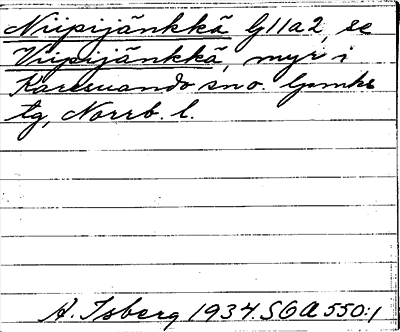 Niipijänkkä G11a2, se
Viipijänkkä, myr i
Karesuando sno. Gsmks
tg, Norrb. l.
A. Isberg 1934. SOA 550:1